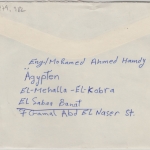 Eng/Mohamed Ahmed Hamdy
Ägypten
El-Mehalla-El-Kobra
El Saber Banat
7 (Hamal Abd EL Naser St.